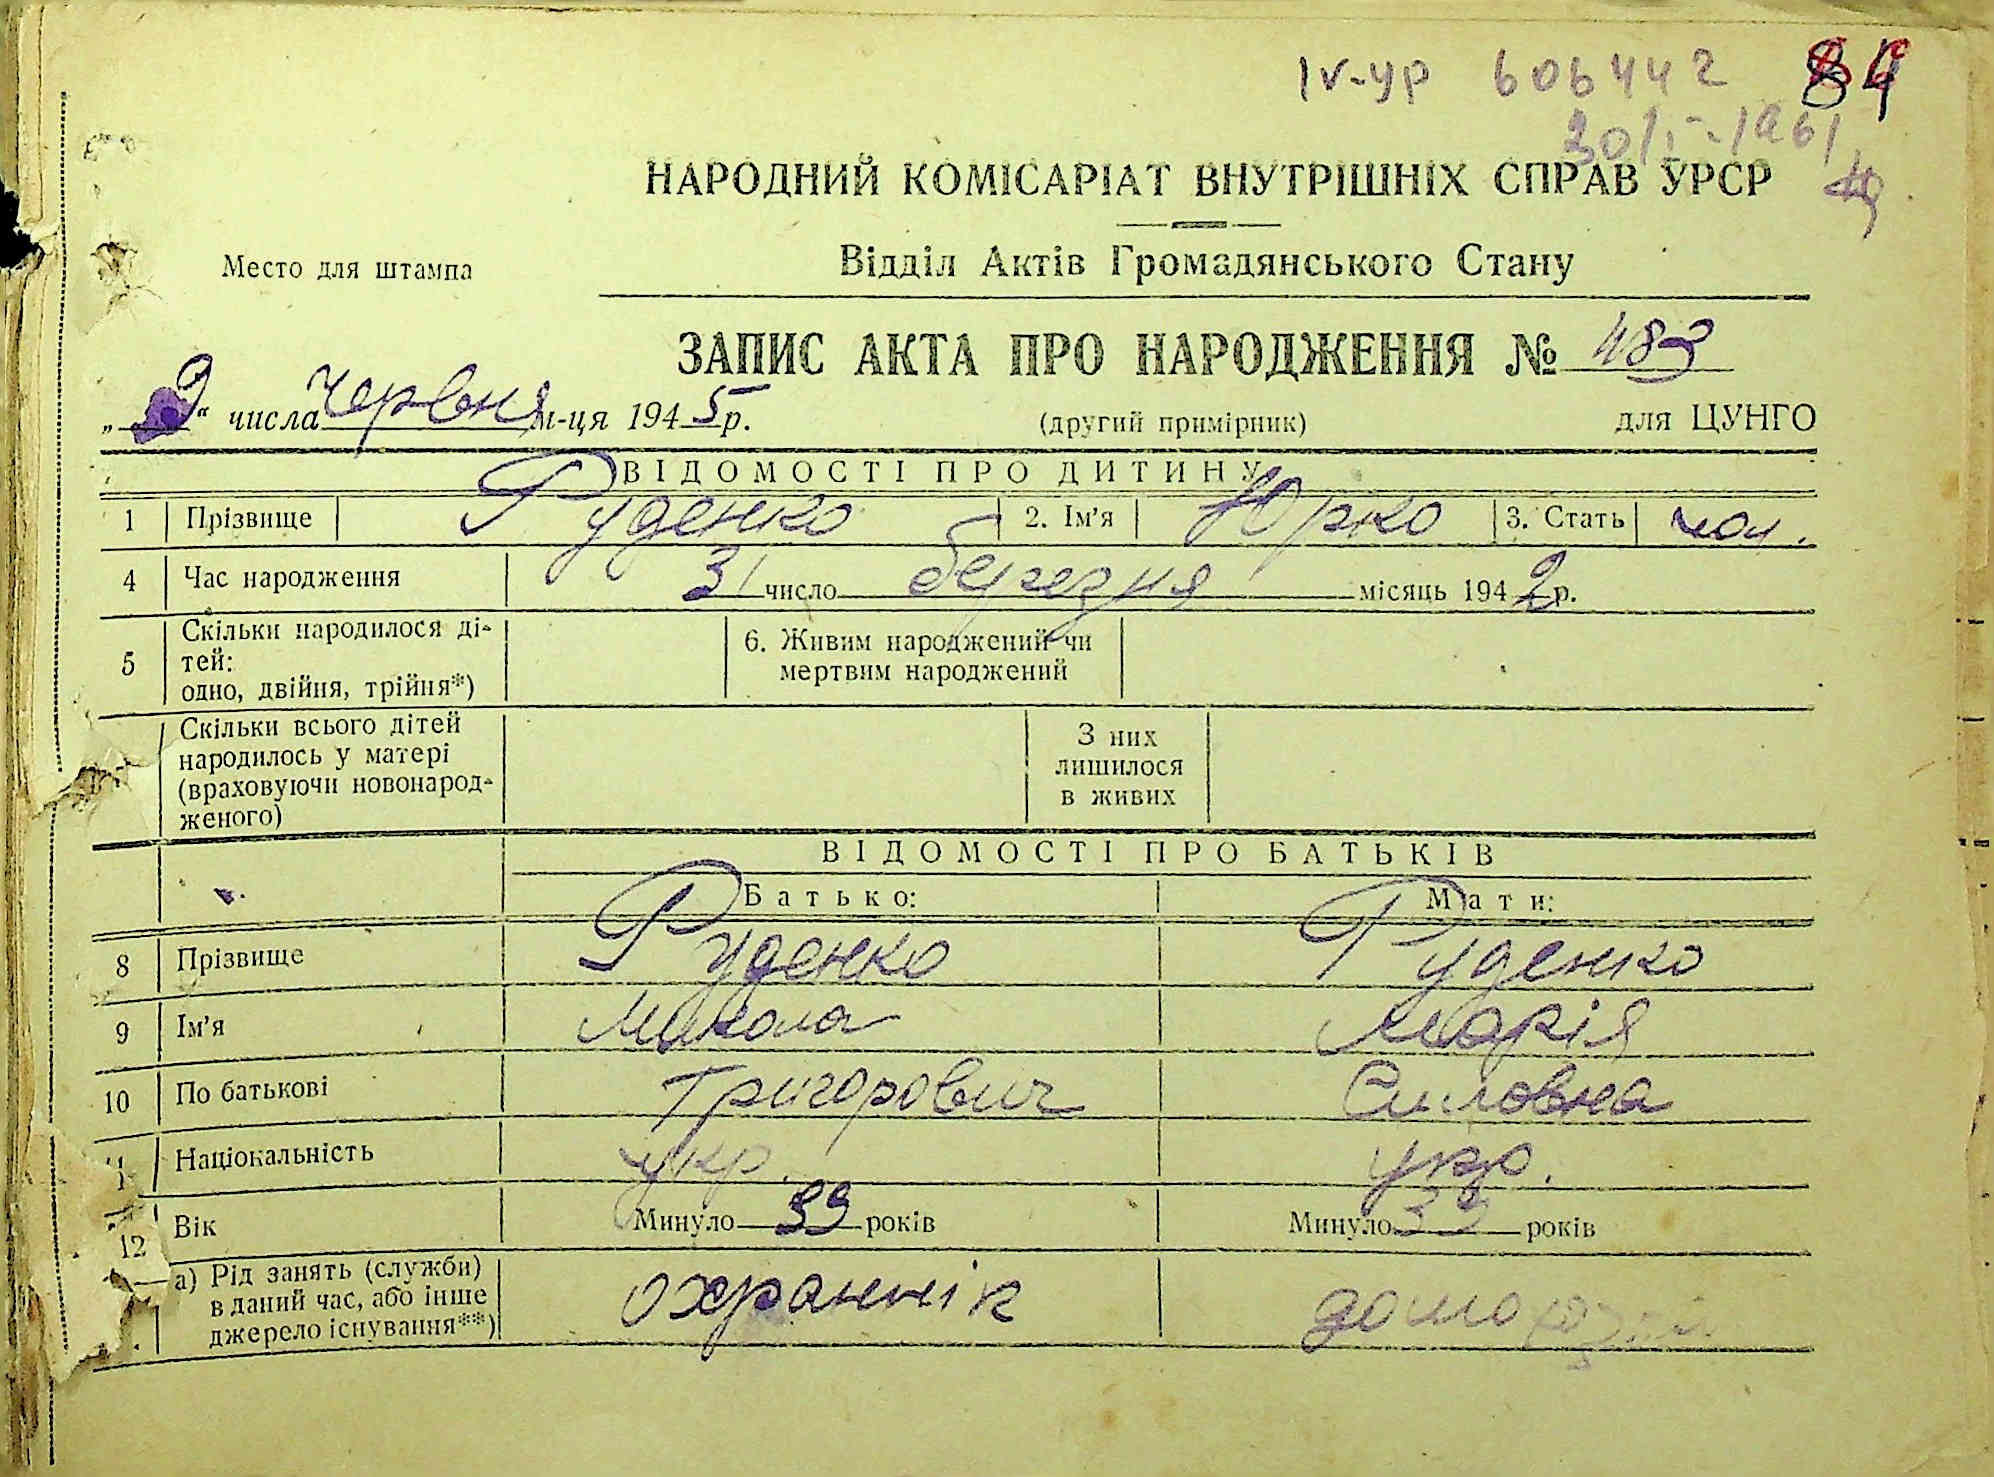 ІV-УР 606442 84
30/I-1961
НАРОДНИЙ КОМІСАРІАТ ВНУТРІШНІХ СПРАВ УРСР
Место для штампа
Відділ Актів Громадянського Стану
ЗАПИС АКТА ПРО НАРОДЖЕННЯ № 483
„9“ числа червня м-ця 1945 р.
(другий примірник)
для ЦУНГО
ВІДОМОСТІ ПРО ДИТИНУ
1 Прізвище Руденко 2. Ім'я Юрко 3. Стать чол.
4 Час народження 31 число березня місяць 1942 р.
5 Скільки народилося ді-
тей:
одно, двійня, трійня*)
6. Живим народжений чи
мертвим народжений
Скільки всього дітей
народилось у матері
(враховуючи новонарод-
женого)
З них
лишилося
в живих
ВІДОМОСТІ ПРО БАТЬКІВ
Батько: Мати:
8 Прізвище Руденко Руденко
9 Ім'я Микола Марія
10 По батькові Григорович Силовна
11 Національність укр. укр.
12 Вік Минуло 39 років Минуло 39 років
а) Рід занять (служби)
в даний час, або інше
джерело існування**)
охраннік